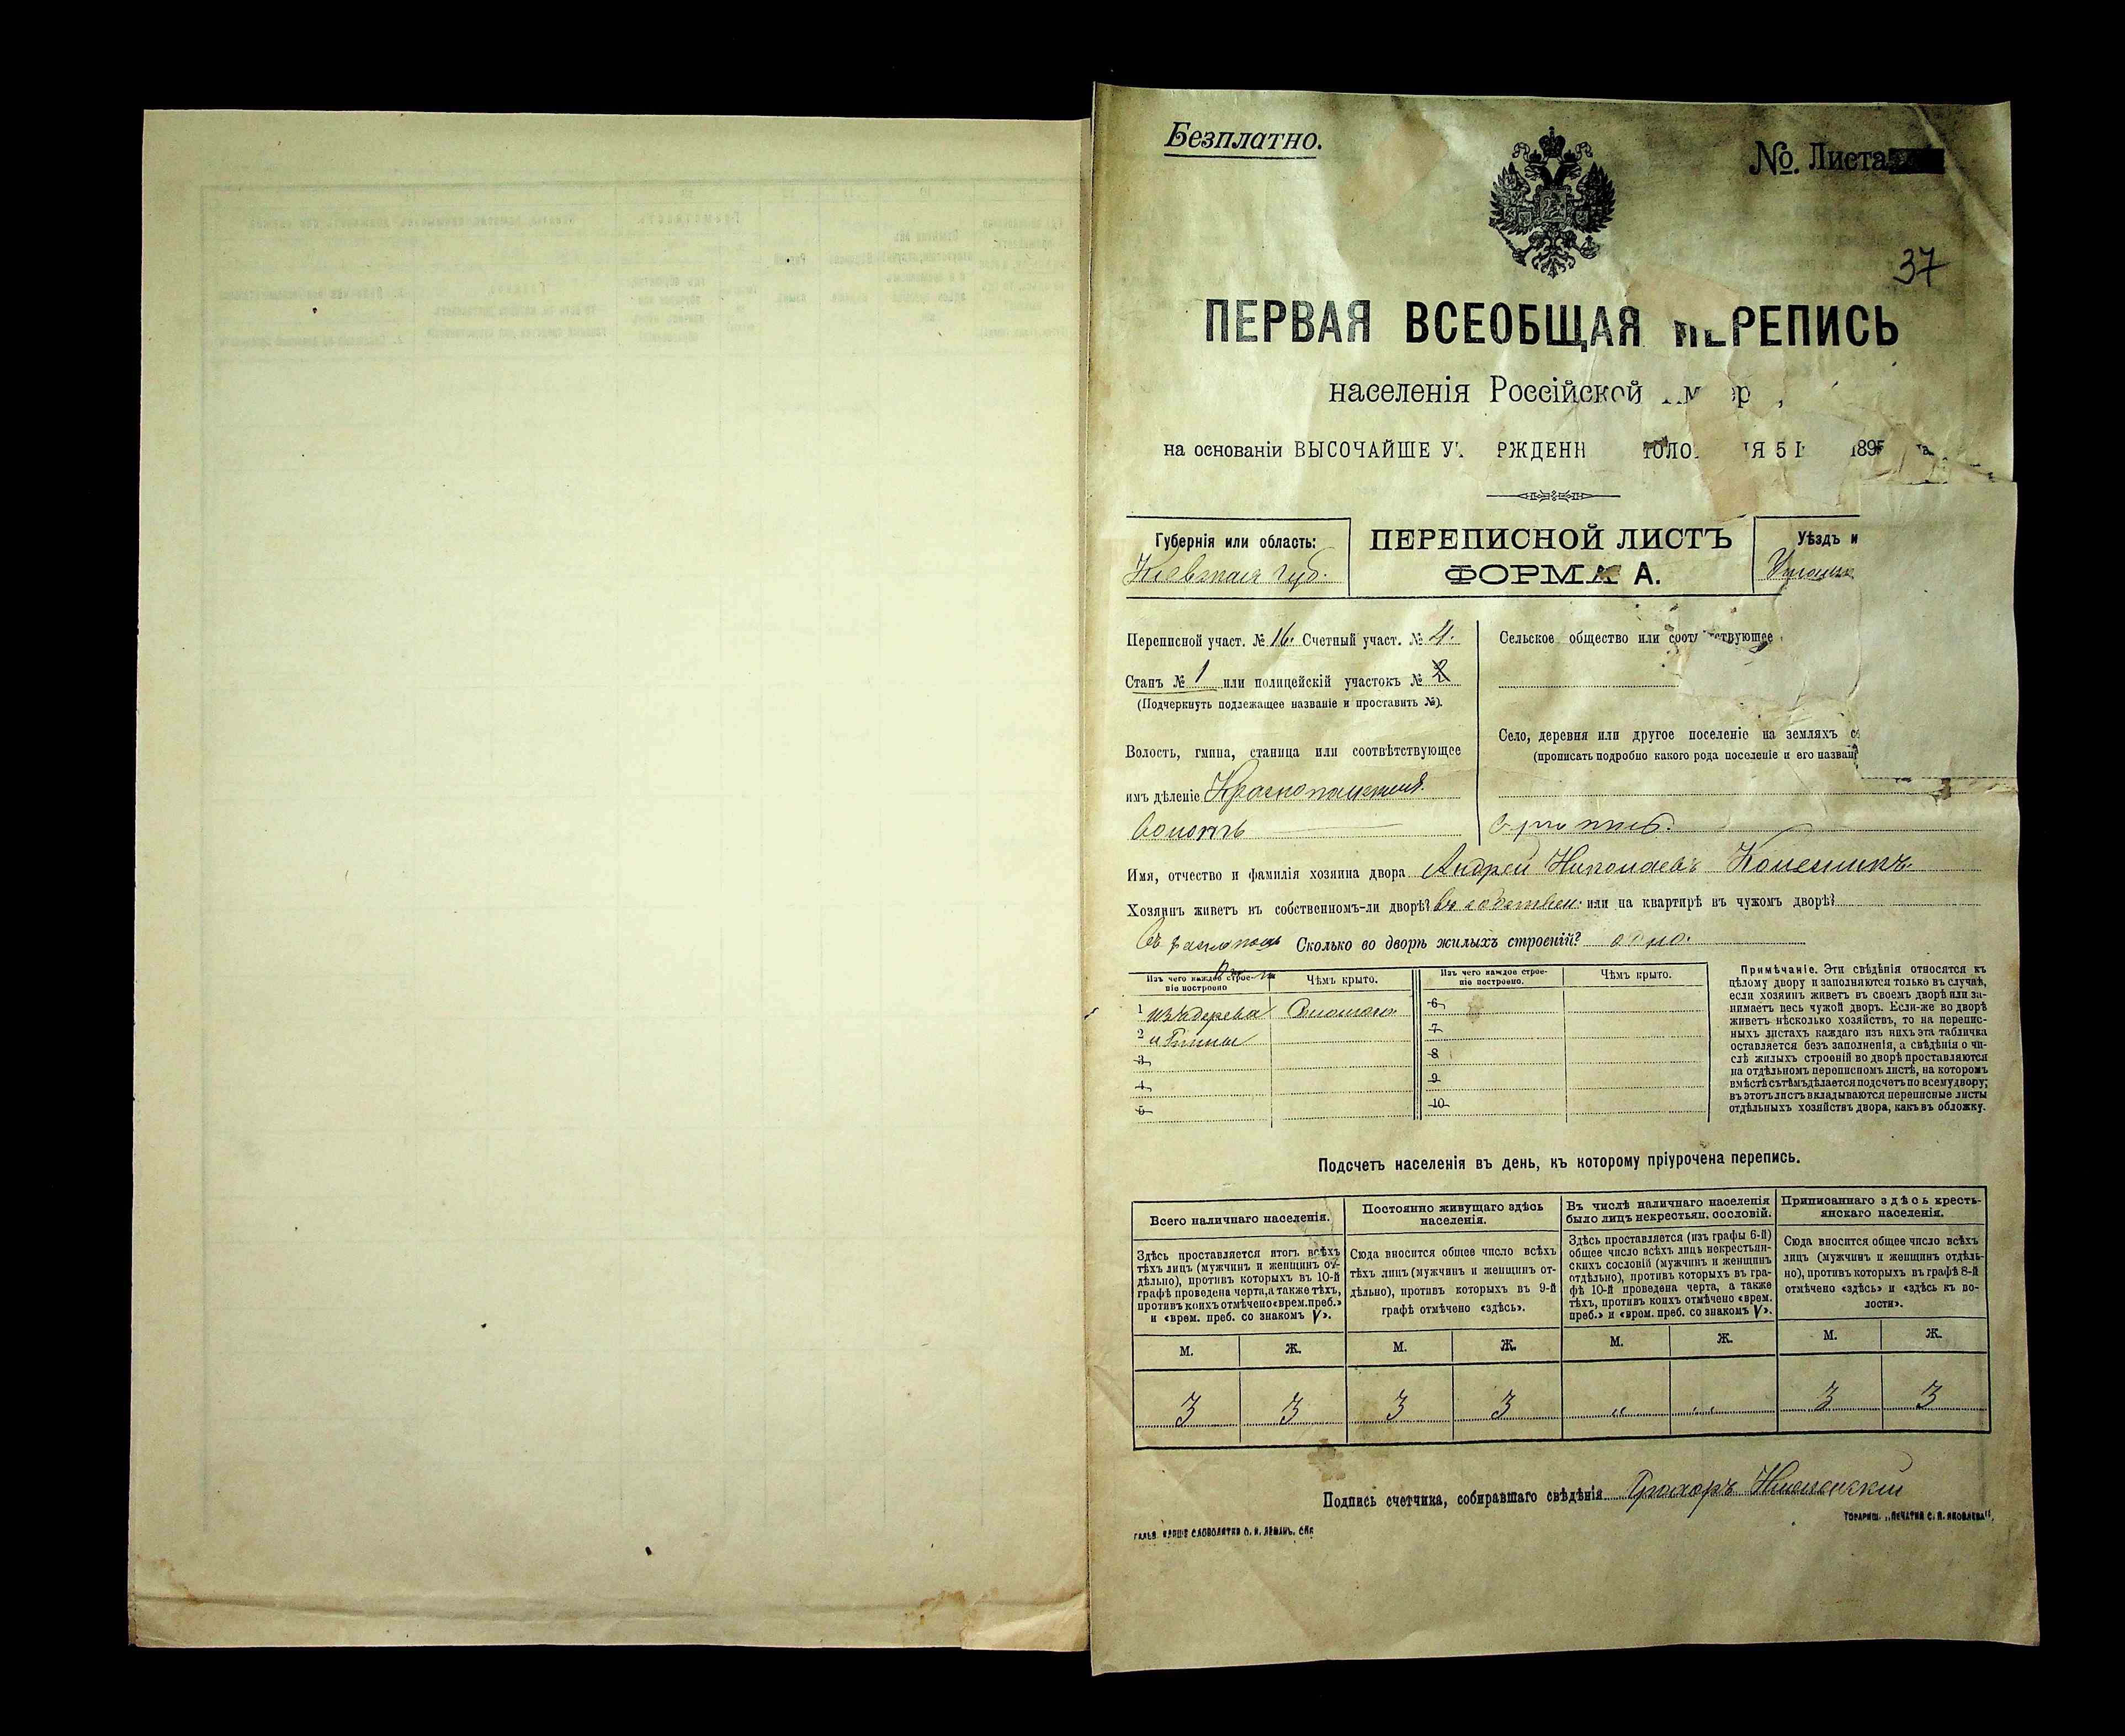 Безплатно.
№. Листа
37
ПЕРВАЯ ВСЕОБЩАЯ ПЕРЕПИСЬ
населенія Россійской
на основаніи ВЫСОЧАЙШЕ
Губернія или область:
Кіевская губ.
ПЕРЕПИСНОЙ ЛИСТЪ
ФОРМА А.
Уѣздъ и
Переписной участ. № 16. Счетный участ. № 4.
Станъ № 1 или полицейскій участокъ №
(Подчеркнуть подлежащее названіе и проставить №).
Волость, гмина, станица или соотвѣтствующее
имъ дѣленіе
волость
Сельское общество или
Село, деревня или другое поселеніе на земляхъ
(прописать подробно какого рода поселеніе и его
Имя, отчество и фамилія хозяина двора Андрей Николаевъ
Хозяинъ живетъ въ собственномъ-ли дворѣ? въ собствен. или на квартирѣ въ чужомъ дворѣ?
Сколько во дворѣ жилыхъ строеній? одно.
Изъ чего каждое строе-
ніе построено
Чѣмъ крыто.
Изъ чего каждое строе-
ніе построено.
Чѣмъ крыто.
1 изъ дерева Соломою
2 и глины
3
4
5
6
7
8
9
10
Примѣчаніе. Эти свѣдѣнія относятся къ
цѣлому двору и заполняются только въ случаѣ,
если хозяинъ живетъ въ своемъ дворѣ или за-
нимаетъ весь чужой дворъ. Если-же во дворѣ
живетъ нѣсколько хозяйствъ, то на перепис-
ныхъ листахъ каждаго изъ нихъ эта табличка
оставляется безъ заполненія, а свѣдѣнія о чи-
слѣ жилыхъ строеній во дворѣ проставляются
на отдѣльномъ переписномъ листѣ, на которомъ
вмѣстѣ съ тѣмъ дѣлается подсчетъ по всему двору;
въ этотъ листъ вкладываются переписные листы
отдѣльныхъ хозяйствъ двора, какъ въ обложку.
Подсчетъ населенія въ день, къ которому пріурочена перепись.
Всего наличнаго населенія.
Здѣсь проставляется итогъ всѣхъ
тѣхъ лицъ (мужчинъ и женщинъ от-
дѣльно), противъ которыхъ въ 10-й
графѣ проведена черта, а также тѣхъ,
противъ коихъ отмѣчено «врем. преб.»
и «врем. преб. со знакомъ V».
Постоянно живущаго здѣсь
населенія.
Сюда вносится общее число всѣхъ
тѣхъ лицъ (мужчинъ и женщинъ от-
дѣльно), противъ которыхъ въ 9-й
графѣ отмѣчено «здѣсь».
Въ числѣ наличнаго населенія
было лицъ некрестьян. сословій.
Здѣсь проставляется (изъ графы 6-й)
общее число всѣхъ лицъ некрестьян-
скихъ сословій (мужчинъ и женщинъ
отдѣльно), противъ которыхъ въ гра-
фѣ 10-й проведена черта, а также
тѣхъ, противъ коихъ отмѣчено «врем.
преб.» и «врем. преб. со знакомъ V».
Приписаннаго здѣсь кресть-
янскаго населенія.
Сюда вносится общее число всѣхъ
лицъ (мужчинъ и женщинъ отдѣль-
но), противъ которыхъ въ графѣ 8-й
отмѣчено «здѣсь» и «здѣсь къ во-
лости».
М. Ж. М. Ж. М. Ж. М. Ж.
3 3 3 3 „ „ 3 3
Подпись счетчика, собиравшаго свѣдѣнія
ТОВАРИЩ. „ПЕЧАТНЯ С. П. ЯКОВЛЕВА",